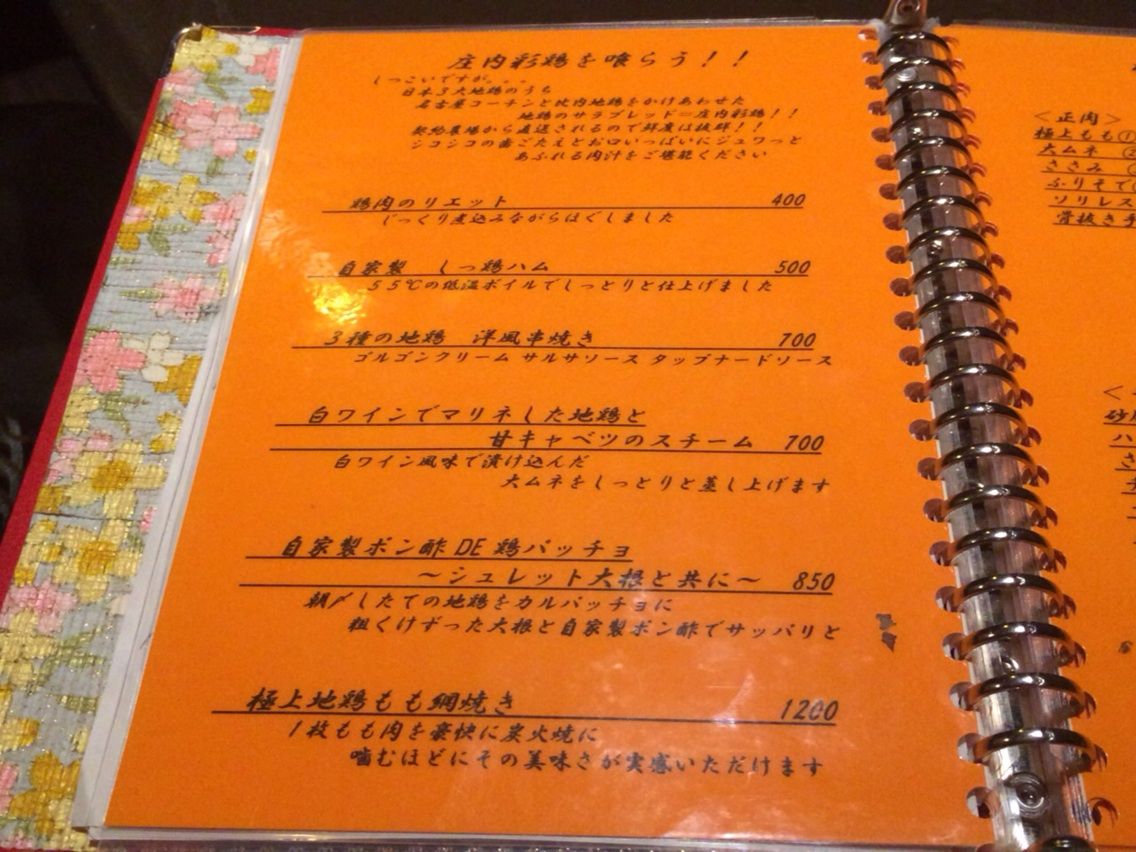 庄内彩鶏を喰らう！！
しつこいですが。。。
日本３大地鶏のうち
名古屋コーチンと比内地鶏をかけあわせた
地鶏のサラブレッド＝庄内彩鶏！！
契約農場から直送されるので鮮度は抜群！！
シコシコの歯ごたえとお口いっぱいにジュワっと
あふれる肉汁をご堪能ください
鶏肉のリエット 400
じっくり煮込みながらほぐしました
自家製 しっ鶏ハム 500
５５℃の低温ボイルでしっとりと仕上げました
３種の地鶏 洋風串焼き 700
ゴルゴンクリーム サルサソース タップナードソース
白ワインでマリネした地鶏と
甘キャベツのスチーム 700
白ワイン風味で漬け込んだ
大ムネをしっとりと蒸し上げます
自家製ポン酢 DE 鶏パッチョ
～シュレット大根と共に～ 850
朝〆したての地鶏をカルパッチョに
粗くけずった大根と自家製ポン酢でサッパリと
極上地鶏もも網焼き 1200
１枚もも肉を豪快に炭火焼に
噛むほどにその美味さが実感いただけます
＜正肉＞
極上もも①
大ムネ
ささみ
ふりそで
ソリレス
骨抜き手